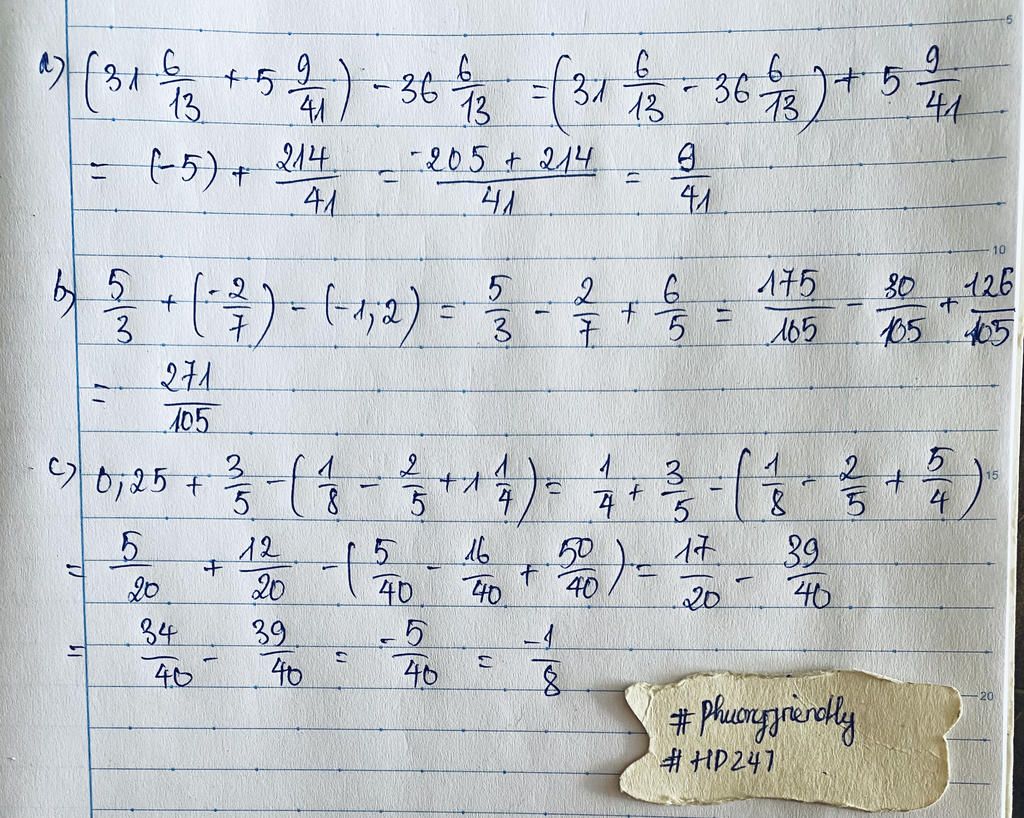 5
a) (31 6/13 + 5 9/41) - 36 6/13 = (31 6/13 - 36 6/13) + 5 9/41
= (-5) + 214/41 = -205 + 214/41 = 9/41
10
b) 5/3 + (-2/7) - (-1,2) = 5/3 - 2/7 + 6/5 = 175/105 - 30/105 + 126/105
= 271/105
c) 0,25 + 3/5 - (1/8 - 2/5 + 1 1/4) = 1/4 + 3/5 - (1/8 - 2/5 + 5/4)
15
= 5/20 + 12/20 - (5/40 - 16/40 + 50/40) = 17/20 - 39/40
= 34/40 - 39/40 = -5/40 = -1/8
20
# Phuongfriendly
# HD247